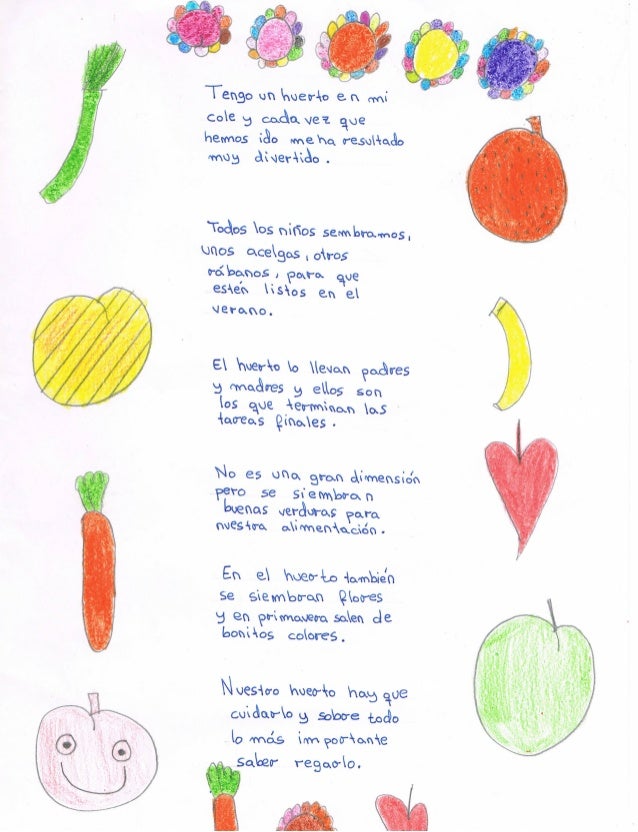 Tengo un huerto en mi
cole y cada vez que
hemos ido me ha resultado
muy divertido.
Todos los niños sembramos,
unos acelgas, otros
rábanos, para que
estén listos en el
verano.
El huerto lo llevan padres
y madres y ellos son
los que terminan las
tareas finales.
No es una gran dimensión
pero se siembran
buenas verduras para
nuestra alimentación.
En el huerto también
se siembran flores
y en primavera salen de
bonitos colores.
Nuestro huerto hay que
cuidarlo y sobre todo
lo más importante
saber regarlo.